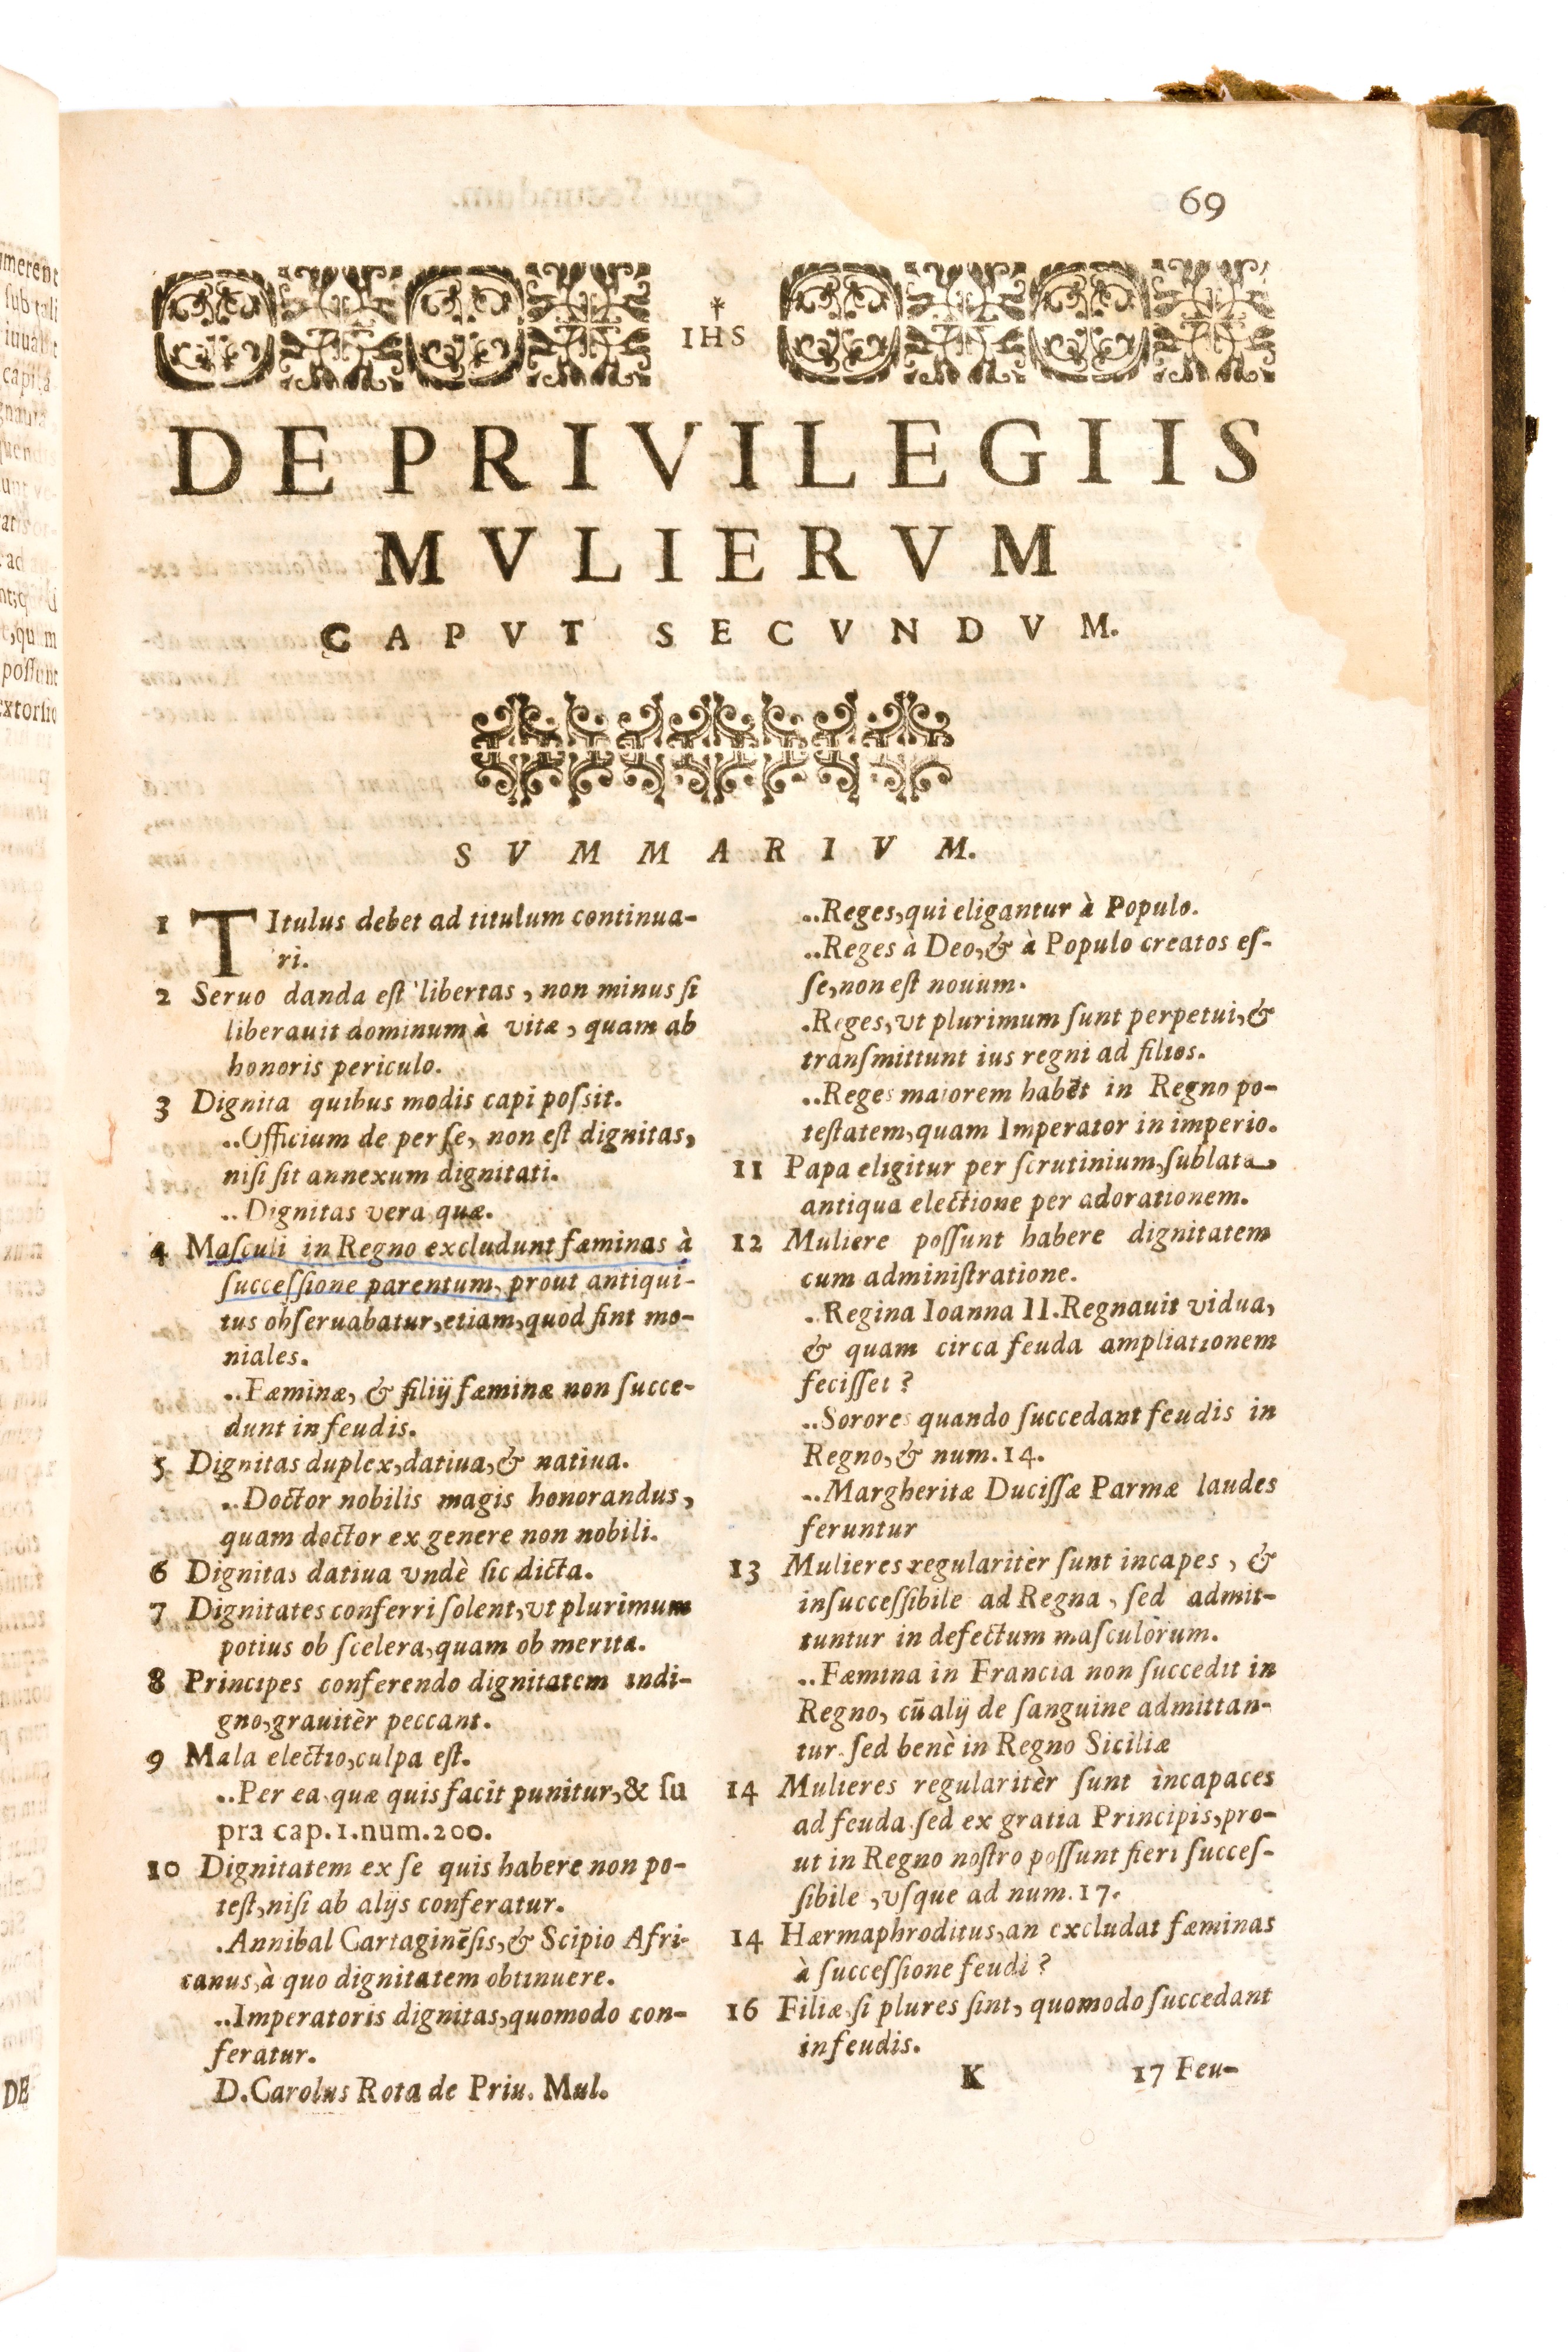 69
IHS
DE PRIVILEGIIS
MVLIERVM
CAPVT SECVNDVM.
SVMMARIVM.
1 TItulus debet ad titulum continua-
ri.
2 Seruo danda eſt libertas, non minus ſi
liberauit dominum à vitæ, quam ab
honoris periculo.
3 Dignita quibus modis capi poſsit.
..Officium de per ſe, non eſt dignitas,
niſi ſit annexum dignitati.
..Dignitas vera quæ.
4 Maſculi in Regno excludunt fæminas à
ſucceſſione parentum, prout antiqui-
tus obſeruabatur, etiam, quod ſint mo-
niales.
..Fæminæ, & filiij fæminæ non ſucce-
dunt in feudis.
5 Dignitas duplex, datiua, & natiua.
..Doctor nobilis magis honorandus,
quam doctor ex genere non nobili.
6 Dignitas datiua vndè ſic dicta.
7 Dignitates conferri ſolent, vt plurimum
potius ob ſcelera, quam ob merita.
8 Principes conferendo dignitatem indi-
gno, grauitèr peccant.
9 Mala electio, culpa eſt.
..Per ea quæ quis facit punitur, & ſu
pra cap.1.num.200.
10 Dignitatem ex ſe quis habere non po-
teſt, niſi ab alijs conferatur.
.Annibal Cartaginēſis, & Scipio Afri-
canus, à quo dignitatem obtinuere.
..Imperatoris dignitas, quomodo con-
feratur.
D.Carolus Rota de Priu. Mul.
..Reges, qui eligantur à Populo.
..Reges à Deo, & à Populo creatos eſ-
ſe, non eſt nouum.
.Reges, vt plurimum ſunt perpetui, &
tranſmittunt ius regni ad filios.
..Reges maiorem habēt in Regno po-
teſtatem, quam Imperator in imperio.
11 Papa eligitur per ſcrutinium, ſublata
antiqua electione per adorationem.
12 Muliere poſſunt habere dignitatem
cum adminiſtratione.
..Regina Ioanna II.Regnauit vidua,
& quam circa feuda ampliationem
feciſſet?
..Sorores quando ſuccedant feudis in
Regno, & num.14.
..Margheritæ Duciſſæ Parmæ laudes
feruntur
13 Mulieres regularitèr ſunt incapes, &
inſucceſſibile ad Regna, ſed admit-
tuntur in defectum maſculòrum.
..Fæmina in Francia non ſuccedit in
Regno, cū alij de ſanguine admittan-
tur. ſed benè in Regno Siciliæ
14 Mulieres regularitèr ſunt incapaces
ad feuda. ſed ex gratia Principis, pro-
ut in Regno noſtro poſſunt fieri ſucceſ-
ſibile, vſque ad num.17.
14 Hærmaphroditus, an excludat fæminas
à ſucceſſione feudi?
16 Filiæ ſi plures ſint, quomodo ſuccedant
in feudis.
K 17 Feu-
DE